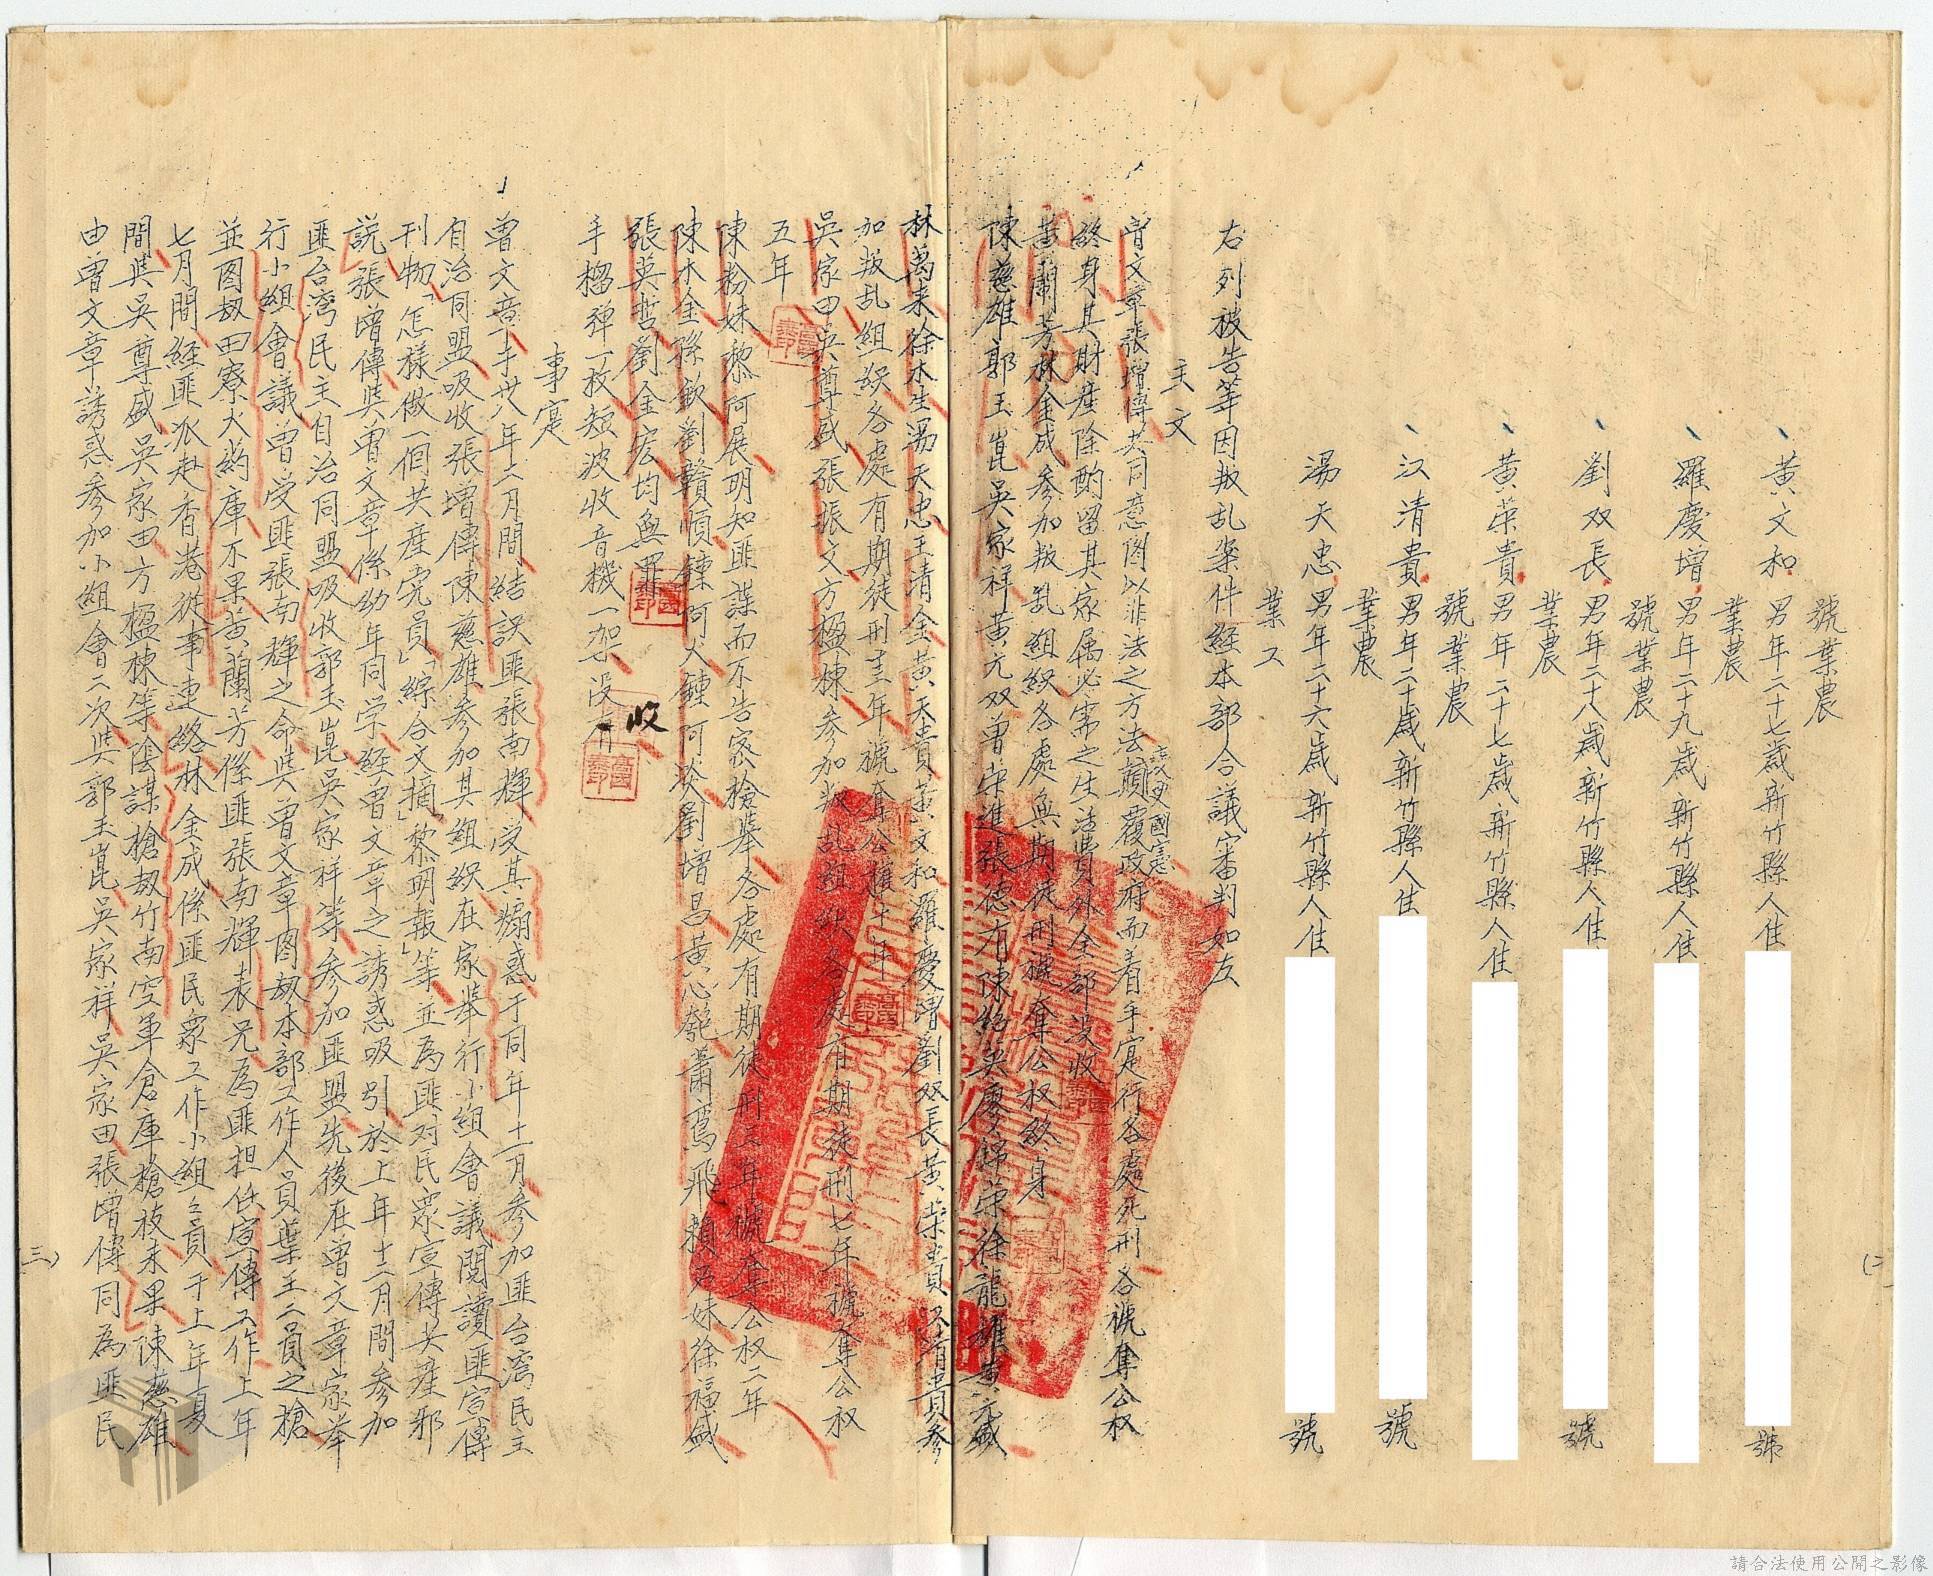 黃文和 男年二十七歲新竹縣人住 號
號業農
羅慶增 男年二十九歲新竹縣人住
業農
劉双長 男年二十八歲新竹縣人住 號
號業農
黃荣貴 男年二十七歲新竹縣人住
業農
江清貴 男年二十歲新竹縣人住 號
號業農
湯天忠 男年二十六歲新竹縣人住 號
業工
右列被告等因叛乱案件經本部合議審判如左
主文
曾文章張增傳共同意图以非法之方法變更國憲顛覆政府而着手实行各處死刑各褫奪公权
終身其財產除酌留其家属必需之生活費外全部没收
黃蘭芳林金成參加叛乱組织各處無期徒刑褫奪公权終身
陳慈雄郭玉崑吳家祥黃元双曾荣進張德有陳紹英廖錦荣徐龍雄黃元盛
林萬来徐木生湯天忠王清金黃天貴黃文和羅慶增劉双長黃荣貴江清貴參
加叛乱組织各處有期徒刑十年褫奪公權十年
吳家田吳尊盛張振文方楹棟參加叛乱組织各處有期徒刑七年褫奪公权
五年
陳粉妹黎阿展明知匪諜而不告密檢舉各處有期徒刑二年褫奪公权二年
陳木金孫欽劉贛順鍾阿火鍾阿淡劉增昌黃心匏蕭鳶飛賴石妹徐福盛
張英哲劉金宏均無罪
手榴弹一枚短波收音機一架没收
事实
曾文章于卅八年二月間結識匪張南輝受其煽惑于同年十一月參加匪台湾民主
自治同盟吸收張增傳陳慈雄參加其組织在家举行小組會議閱讀匪宣傳
刊物「怎樣做一個共產党員」「綜合文摘」「黎明報」等並為匪对民眾宣傳共產邪
說張增傳與曾文章係幼年同学經曾文章之誘惑吸引於上年十二月間參加
匪台湾民主自治同盟吸收郭玉崑吳家祥等參加匪盟先後在曾文章家举
行小組會議曾受匪張南輝之命與曾文章图劫本部工作人員葉王二員之槍
並图劫田寮火葯庫不果黃蘭芳係匪張南輝表兄為匪担任宣傳工作上年
七月間經匪派赴香港從事連絡林金成係匪民眾工作小組々員于上年夏
間與吳尊盛吳家田方楹棟等陰謀槍劫竹南空軍倉庫槍枝未果陳慈雄
由曾文章誘惑參加小組會二次與郭玉崑吳家祥吳家田張增傳同為匪民
(二)
(三)
請合法使用公開之影像